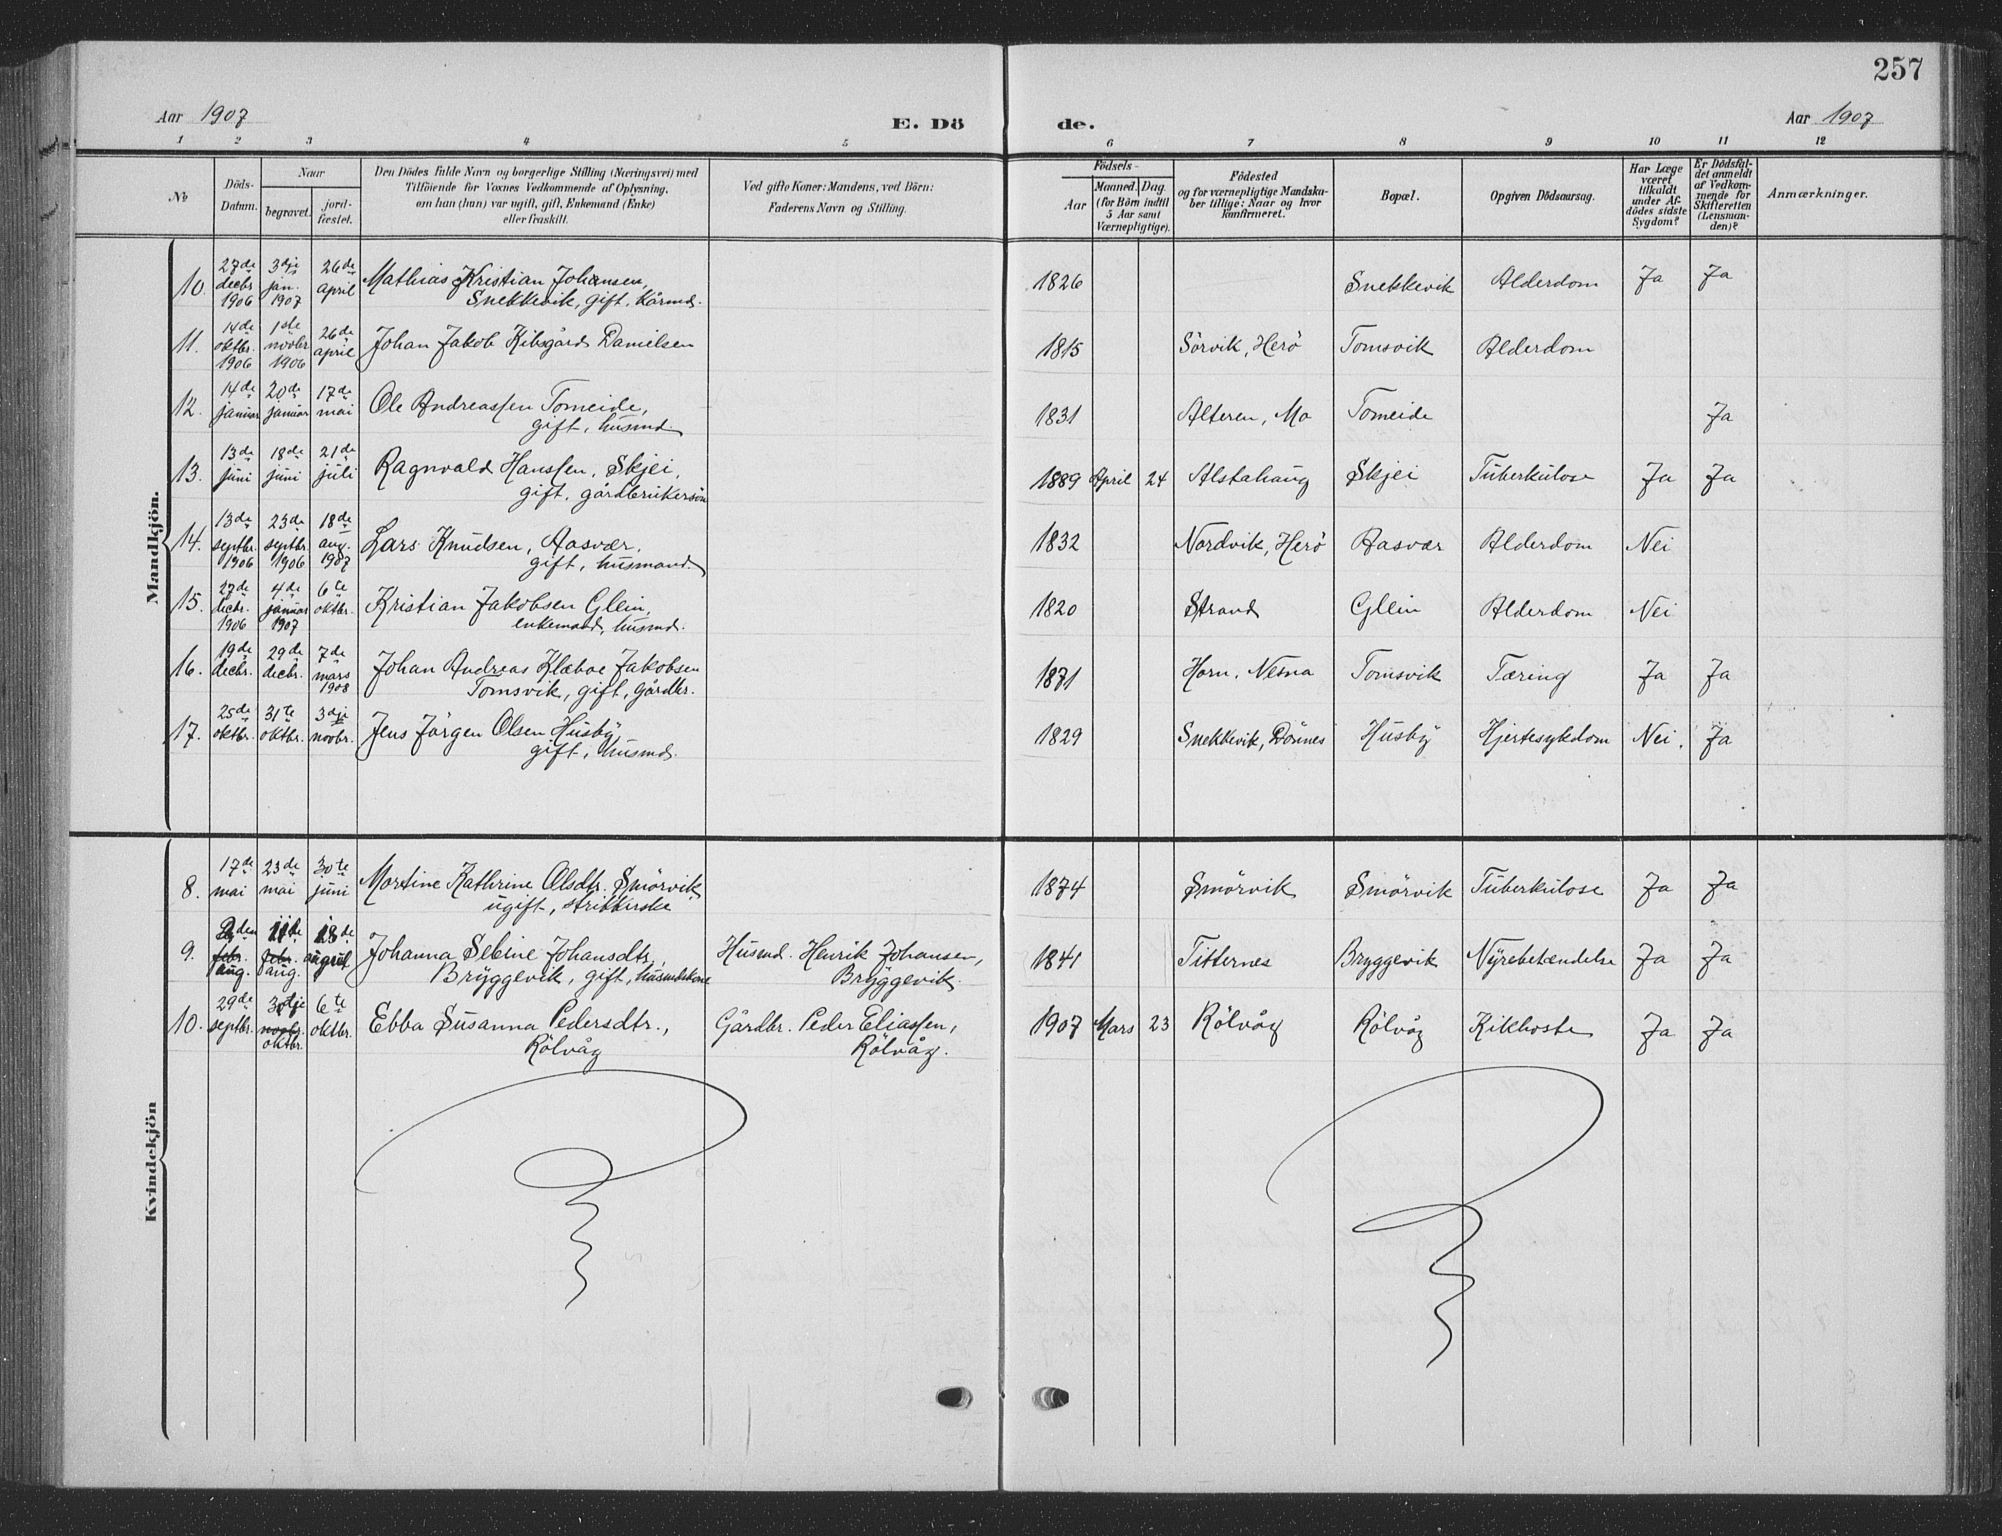 257
Aar 1907
E. Dö
de.
Aar 1907
1 2 3 4 5 6 7 8 9 10 11 12
No
Döds-
Datum.
Naar
begravet.
jord-
fæstet.
Den Dödes fulde Navn og borgerlige Stilling (Næringsvei) med
Tilföiende for Voxnes Vedkommende af Oplysning,
om han (hun) var ugift, gift, Enkemand (Enke)
eller fraskilt.
Ved gifte Koner: Mandens, ved Börn:
Faderens Navn og Stilling.
Födsels-
Aar
Maaned. Dag.
(for Börn indtil
5 Aar samt
Værnepligtige).
Födested
og for værnepligtige Mandsku-
ber tillige: Naar og hvor
konfirmeret.
Bopæl.
Opgiven Dödsaarsag.
Har Læge
været
tilkaldt
under Af-
dödes sidste
Sygdom?
Er Dödsfal-
det anmeldt
af Vedkom-
mende for
Skifteretten
(Lensman-
den)?
Anmærkninger.
Mandkjön.
10. 27de decbr 1906 3dje jan. 1907 26de april Mathias Kristian Johansen, 1826 Snekkevik Alderdom Ja Ja
Snekkevik, gift, kårmd.
11. 14de oktbr. 1906 1ste novbr 1906 26de april Johan Jakob Kibsgård Danielsen 1815 Sörvik, Herö Tomsvik Alderdom
12. 14de januar 20de januar 17de mai Ole Andreassen Tomeide, 1831 Alteren, Mo Tomeide Ja
gift, husmd.
13. 13de juni 18de juni 21de juli Ragnvald Hanssen, Skjei, 1889 April 24 Alstahaug Skjei Tuberkulose Ja Ja
gift, gårdbrukersön
14. 13de septbr. 1906 23de septbr. 1906 18de aug. 1907 Lars Knudsen, Aasvær, 1832 Nordvik, Herö Aasvær Alderdom Nei
gift, husmand.
15. 27de decbr. 1906 4de januar 1907 6te oktbr. Kristian Jakobsen Glein, 1820 Strand Glein Alderdom Nei
enkemand, husmd.
16. 19de decbr. 29de decbr. 7de mars 1908 Johan Andreas Klæboe Jakobsen 1871 Horn, Nesna Tomsvik Tæring Ja Ja
Tomsvik, gift, gårdbr.
17. 25de oktbr. 31te oktbr. 3dje novbr. Jens Jörgen Olsen Husby, 1829 Snekkevik, Dönnes Husby Hjertesykdom Nei. Ja
gift, husmd.
Kvindekjön
8. 17de mai 23de mai 30te juni Martine Kathrine Olsdtr. Smörvik, 1874 Smörvik Smörvik Tuberkulose Ja Ja
ugift, strikkerske
9. 2den febr. aug. 11te febr. aug. 18de august Johanna Sebine Johansdtr., Husmd. Henrik Johansen, 1841 Titternes Bryggevik Nyrebetændelse Ja Ja
Bryggevik, gift, husmdskone Bryggevik.
10. 29de septbr. 3dje novbr. oktbr. 6te oktbr. Ebba Susanna Pedersdtr., Gårdbr. Peder Eliassen, 1907 Mars 23 Rölvåg Rölvåg Kikhoste Ja Ja
Rölvåg Rölvåg.